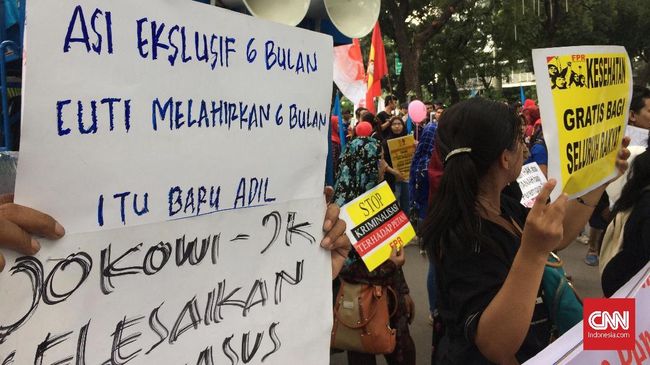 ASI EKSLUSIF 6 BULAN
CUTI MELAHIRKAN 6 BULAN
ITU BARU ADIL
JOKOWI-JK
STOP
KRIMINALISASI
TERHADAP PETANI
FPR
FPR
KESEHATAN
GRATIS BAGI
SELURUH RAKYAT
FPR
CNN
Indonesia.com